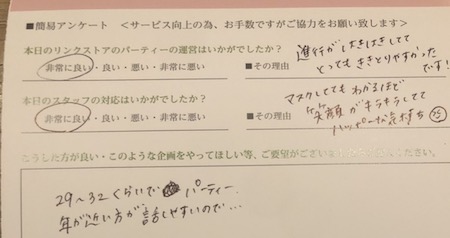 ■簡易アンケート <サービス向上の為、お手数ですがご協力をお願い致します>
本日のリンクストアのパーティーの運営はいかがでしたか?
非常に良い・良い・悪い・非常に悪い
■その理由
進行がはきはきしてて
とってもききとりやすかった
です!
本日のスタッフの対応はいかがでしたか?
非常に良い・良い・悪い・非常に悪い
■その理由
マスクしててもわかるほど
笑顔がキラキラしてて
ハッピーな気持ち
こうした方が良い・このような企画をやってほしい等、ご要望がございま
29〜32くらいで パーティー
年が近い方が話しやすいので…